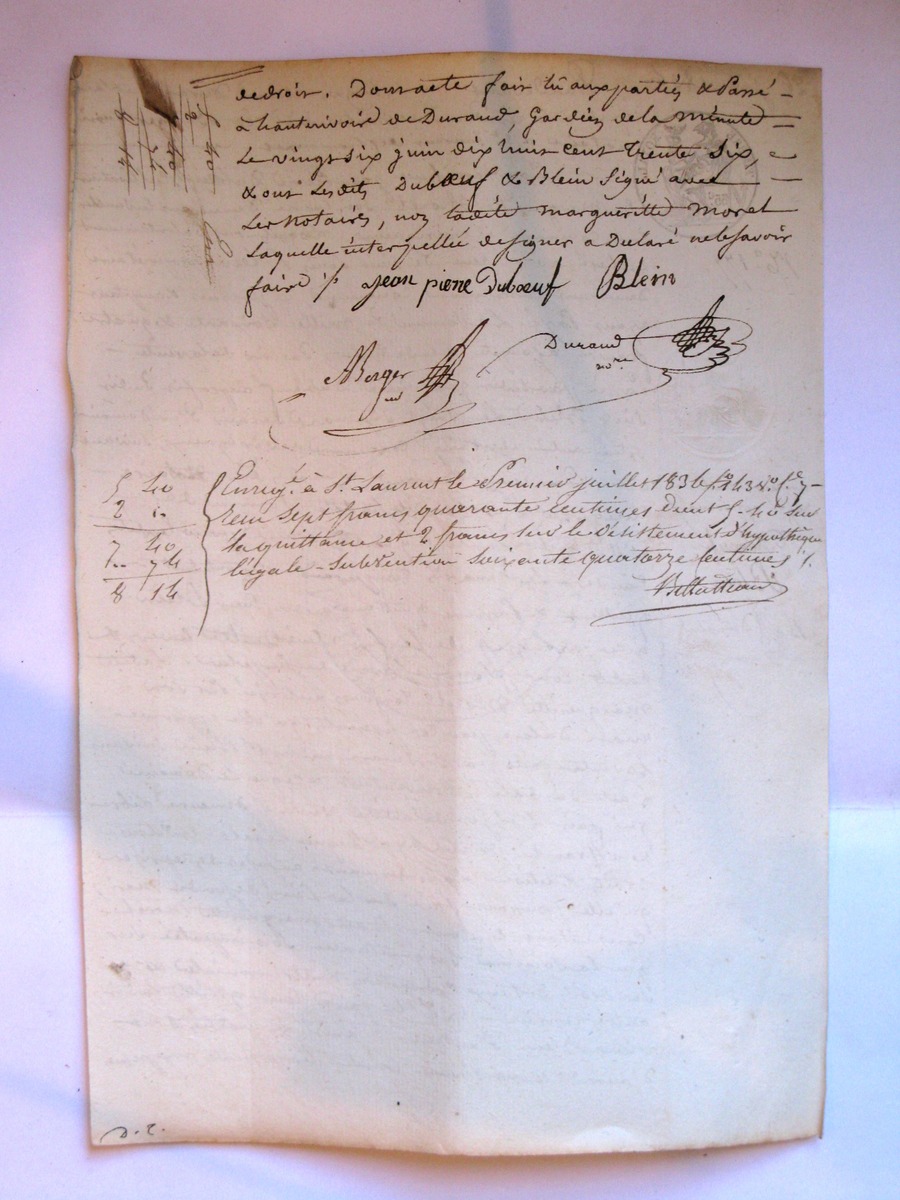 de droit. Dont acte fait lu aux parties & Passé
à hauterivoire de Durand, Gardien de la minute
Le vingt six juin dix huit cent trente six,
& ont Lesdits Duboeuf & Blein Signé avec
Les Notaires, non ladite margueritte moret
Laquelle interpellée de signer a Déclaré ne le savoir
faire ./.
Jean pierre Duboeuf Blein
Durand
nore
Berger
5 40
2 "
7 40
" 74
8 14
Enregt. à St. Laurent le Premier juillet 1836 fo. 143 Vo. Ce. 7
reçu sept francs quarante centimes dont 5. 40 sur
la quittance et 2 francs sur le Désistement d'hypothèque
légale - Subvention soixante quatorze centimes ./.
5 40
2
7 40
74
8 14
D. C.